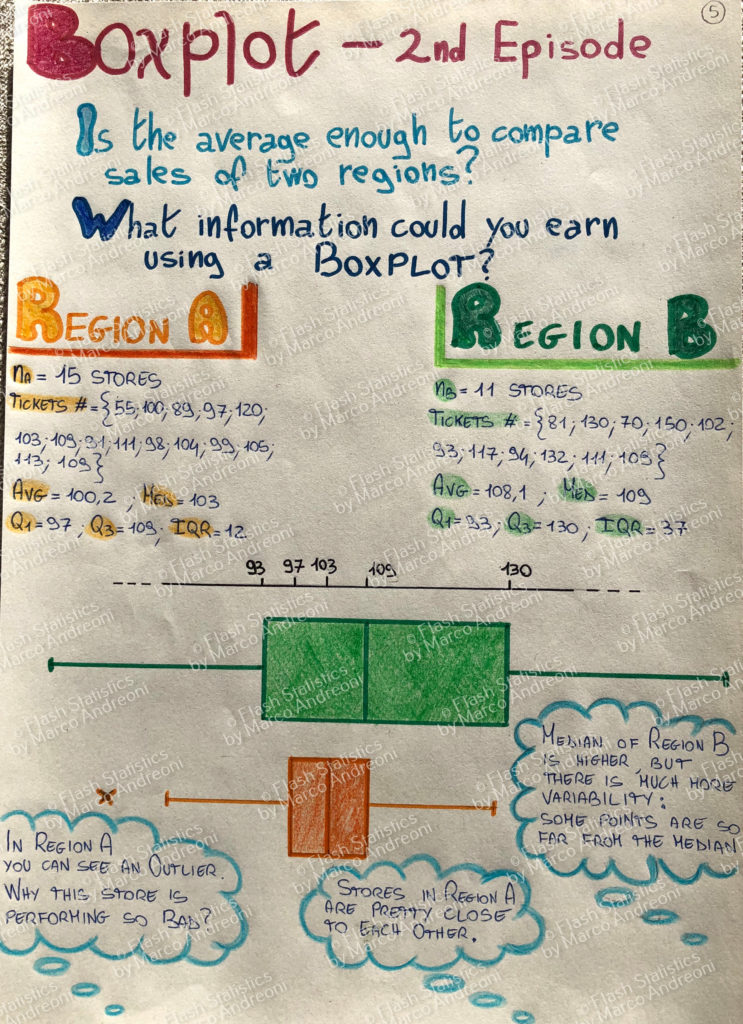 5
Boxplot – 2nd Episode
Is the average enough to compare
sales of two regions?
What information could you earn
using a BOXPLOT?
REGION A
NA = 15 STORES
TICKETS # = {55; 100; 89; 97; 120;
103; 109; 91; 111; 98; 104; 99; 105;
113; 109}
AVG = 100,2 ; MED = 103
Q1 = 97 ; Q3 = 109; IQR = 12
REGION B
NB = 11 STORES
TICKETS # = {81; 130; 70; 150; 102;
93; 117; 94; 132; 111; 109}
AVG = 108,1 ; MED = 109
Q1 = 93; Q3 = 130 ; IQR = 37
93 97 103 109 130
MEDIAN OF REGION B
IS HIGHER, BUT
THERE IS MUCH MORE
VARIABILITY:
SOME POINTS ARE SO
FAR FROM THE MEDIAN
IN REGION A
YOU CAN SEE AN OUTLIER.
WHY THIS STORE IS
PERFORMING SO BAD?
STORES IN REGION A
ARE PRETTY CLOSE
TO EACH OTHER.
© Flash Statistics
by Marco Andreoni